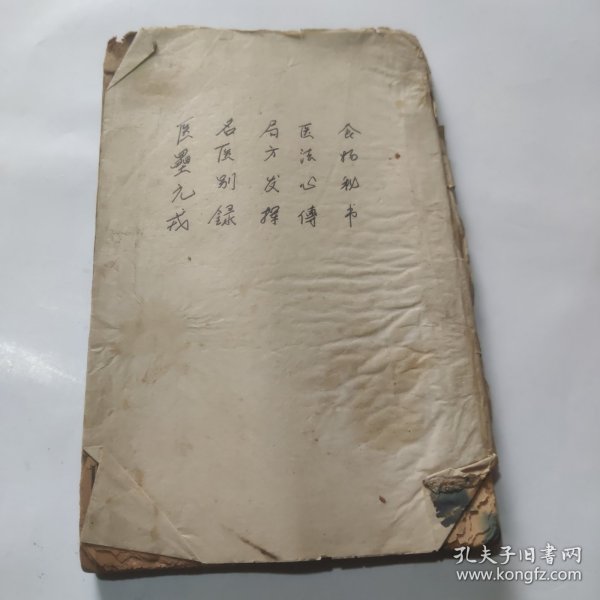 食物秘书
医法心傳
局方发揮
名医别録
医壘元戎
孔夫子旧書网
www.kongfz.com